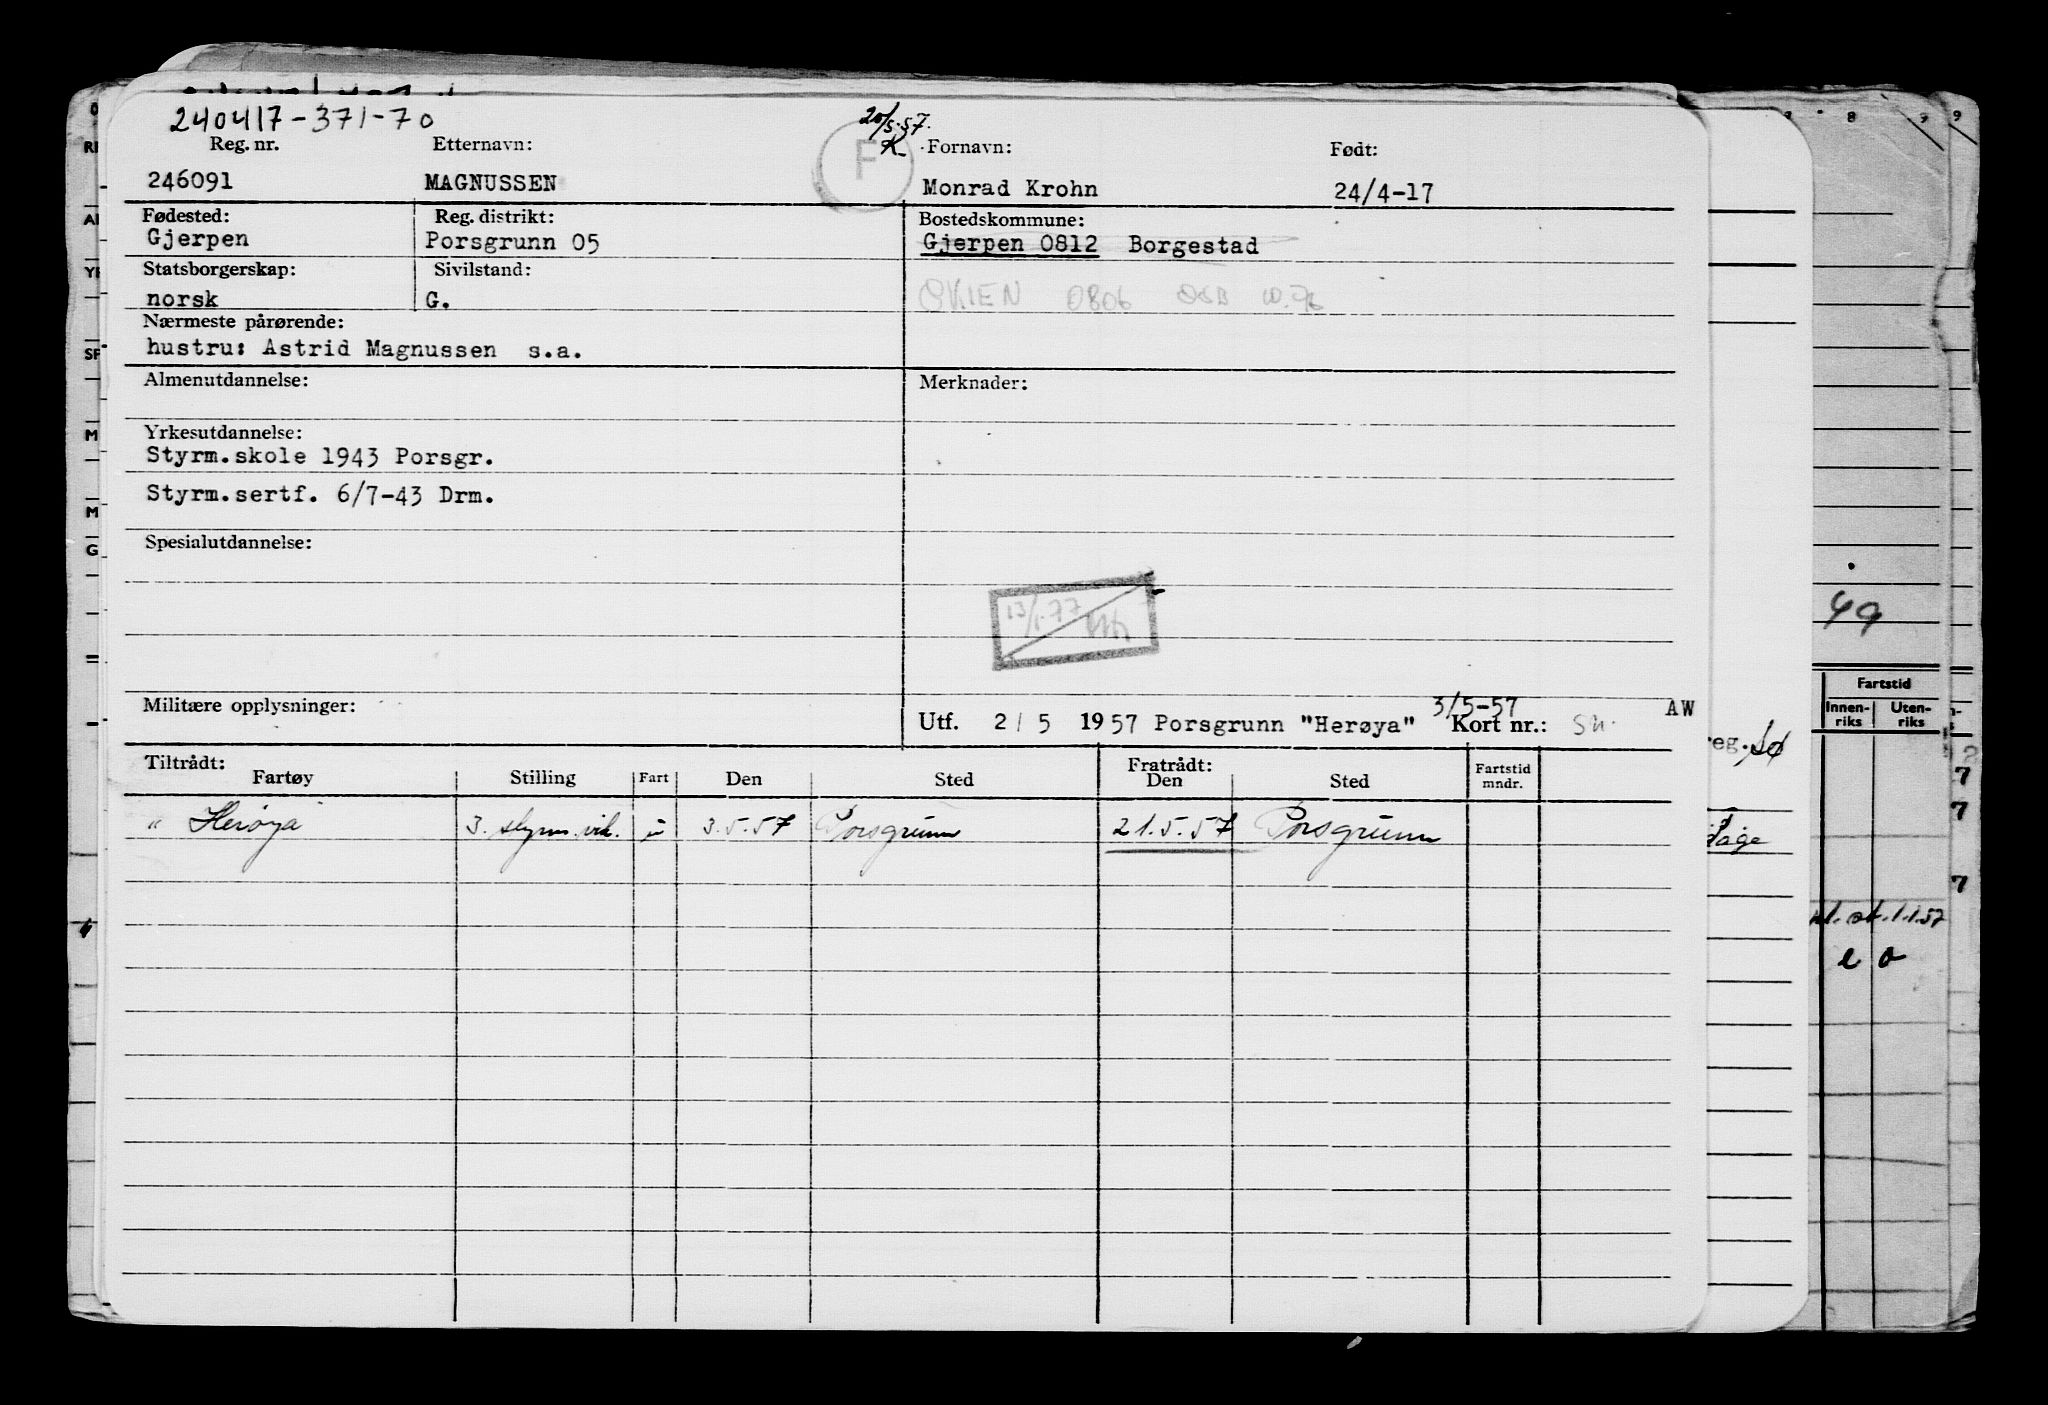 240417-371-70
20/5.57.
K
F
Reg. nr. Etternavn: Fornavn: Født:
246091 MAGNUSSEN Monrad Krohn 24/4-17
Fødested: Reg. distrikt: Bostedskommune:
Gjerpen Porsgrunn 05 Gjerpen 0812 Borgestad
Statsborgerskap: Sivilstand:
norsk G. SKIEN 0806
Nærmeste pårørende:
hustru: Astrid Magnussen s.a.
Almenutdannelse: Merknader:
Yrkesutdannelse:
Styrm.skole 1943 Porsgr.
Styrm.sertf. 6/7-43 Drm.
Spesialutdannelse:
13/1.77
Militære opplysninger:
3/5-57 AW
Utf. 2/5 1957 Porsgrunn "Herøya" Kort nr.:
Tiltrådt: Fratrådt:
Fartøy Stilling Fart Den Sted Den Sted Fartstid mndr.
" Herøya 3. styrm. vik. u 3.5.57 Porsgrunn 21.5.57 Porsgrunn
8 9 9
49
Fartstid
Innen-riks Uten-riks
eg. Sø
7
7
7
1.1.57
e o